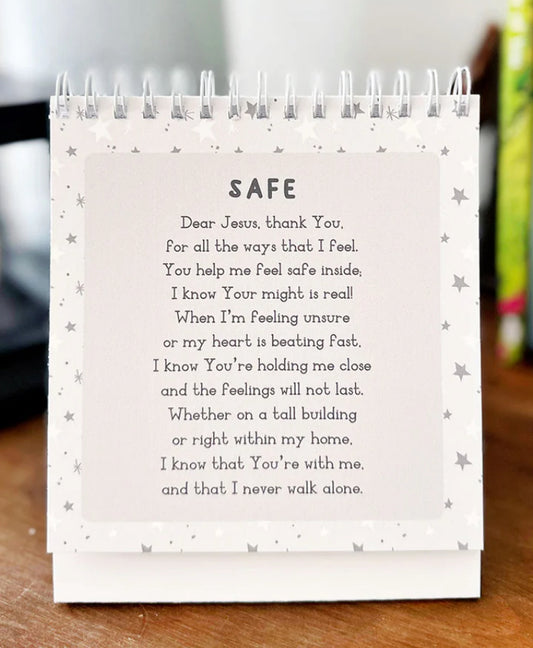 SAFE
Dear Jesus, thank You,
for all the ways that I feel.
You help me feel safe inside;
I know Your might is real!
When I'm feeling unsure
or my heart is beating fast,
I know You're holding me close
and the feelings will not last.
Whether on a tall building
or right within my home,
I know that You're with me,
and that I never walk alone.